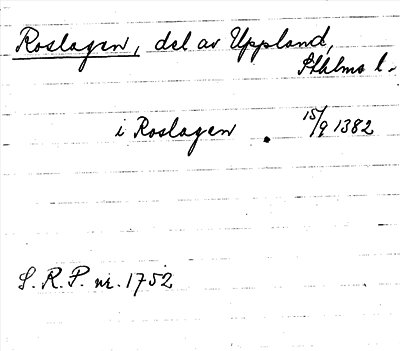 Roslagen, del av Uppland,
Sthlms l.
i Roslagen . 15/9 1382
S. R. P. nr. 1752